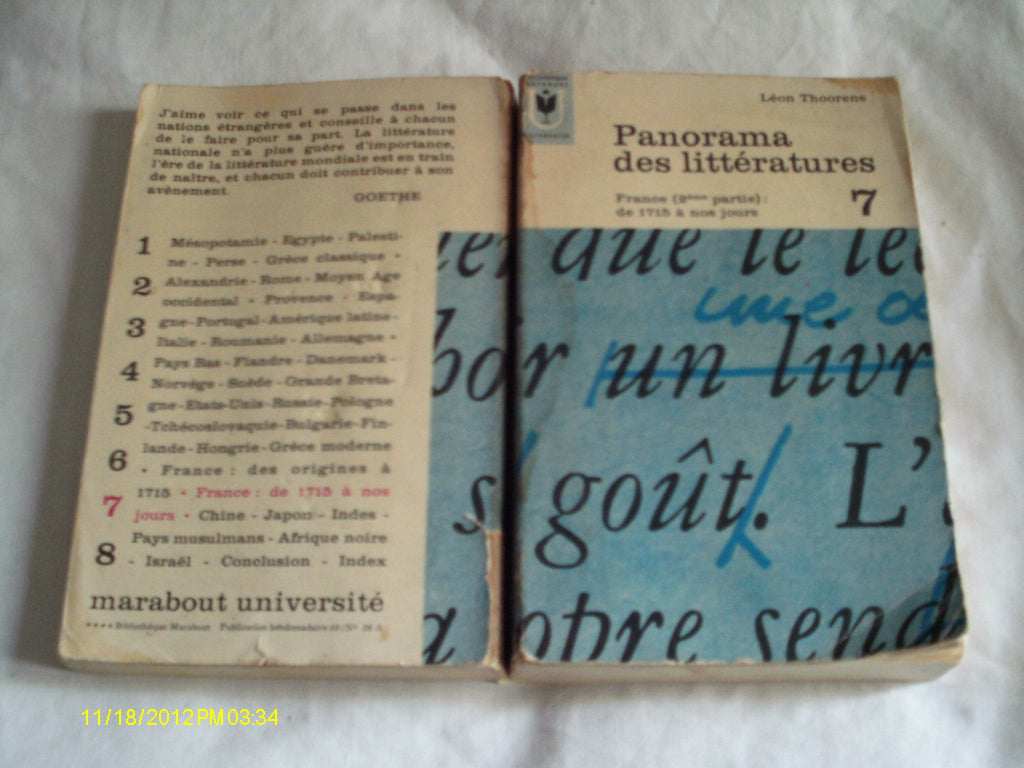 J'aime voir ce qui se passe dans les
nations étrangères et conseille à chacun
de le faire pour sa part. La littérature
nationale n'a plus guère d'importance,
l'ère de la littérature mondiale est en train
de naître, et chacun doit contribuer à son
avènement.
GOETHE
1 Mésopotamie - Egypte - Palesti-
ne - Perse - Grèce classique •
2 Alexandrie - Rome - Moyen Age
occidental • Provence - Espa-
3 gne - Portugal - Amérique latine -
Italie - Roumanie - Allemagne •
4 Pays Bas - Flandre - Danemark -
Norvège - Suède - Grande Breta-
5 gne - Etats-Unis - Russie - Pologne
- Tchécoslovaquie - Bulgarie - Fin-
6 lande - Hongrie - Grèce moderne
• France : des origines à
7 1715 • France : de 1715 à nos
jours • Chine - Japon - Indes -
Pays musulmans - Afrique noire
8 - Israël - Conclusion - Index
marabout université
**** Bibliothèque Marabout Publication hebdomadaire
Léon Thoorens
Panorama
des littératures
France (2ème partie) :
de 1715 à nos jours
7
que le le
une
bor un livr
s goût. L'
send
11/18/2012PM03:34